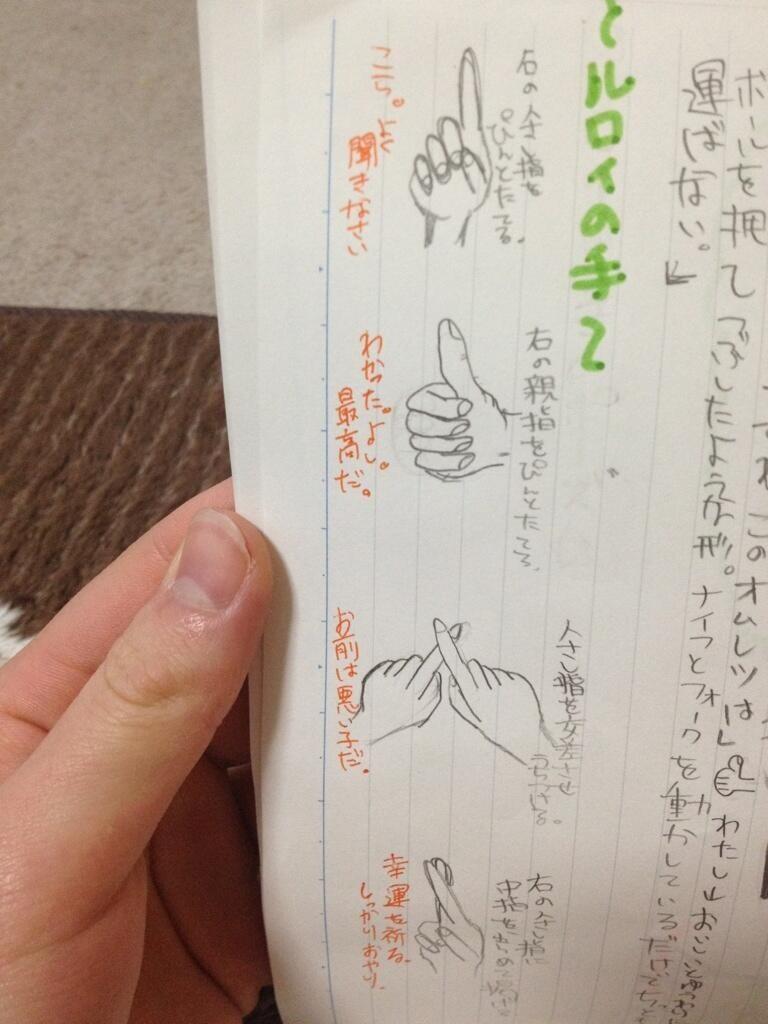 ボールを押してつぶしたような形。
運ばない。
ナイフとフォークを動かしているだけで
このオムレツは
わたし
ルロイの手
右の人さし指を
ぴんとたてる。
こら。よく
聞きなさい
右の親指をぴんとたてる。
わかった。よし。
最高だ。
人さし指を交差させ
うちつける。
お前は悪い子だ。
右の人さし指に
中指をからめて
幸運を祈る
しっかりおやり